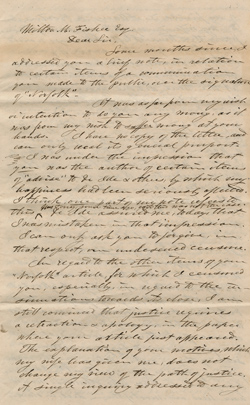 Milton M. Fisher Esq
Dear Sir,
Some months since I
addressed you a brief note, in relation
to certain items of a communication
you made to the public, over the signature
of "Norfolk".
It was as far from my wish
or intention to do you any wrong, as it
was from my wish to suffer wrong at your
hands. I have no copy of the letter, and
can only recollect its general purport.
I was under the impression that
you was the author of certain items
of advice to de Isle & others, by which our
happiness had been seriously affected.
de Isle assured me, today, that
I was mistaken in that impression.
I can only ask you to forgive, in
that respect, our undeserved censure.
In regard to the other items of your
"Norfolk" article, for which I censured
you, especially in regard to the in
sinuation towards de Isle, I am
still convinced that justice requires
a retraction & apology, in the paper
where your article first appeared.
The explanation of your motives which
my wife has given me does not
change my view of the path of justice.
A simple inquiry addressed to any